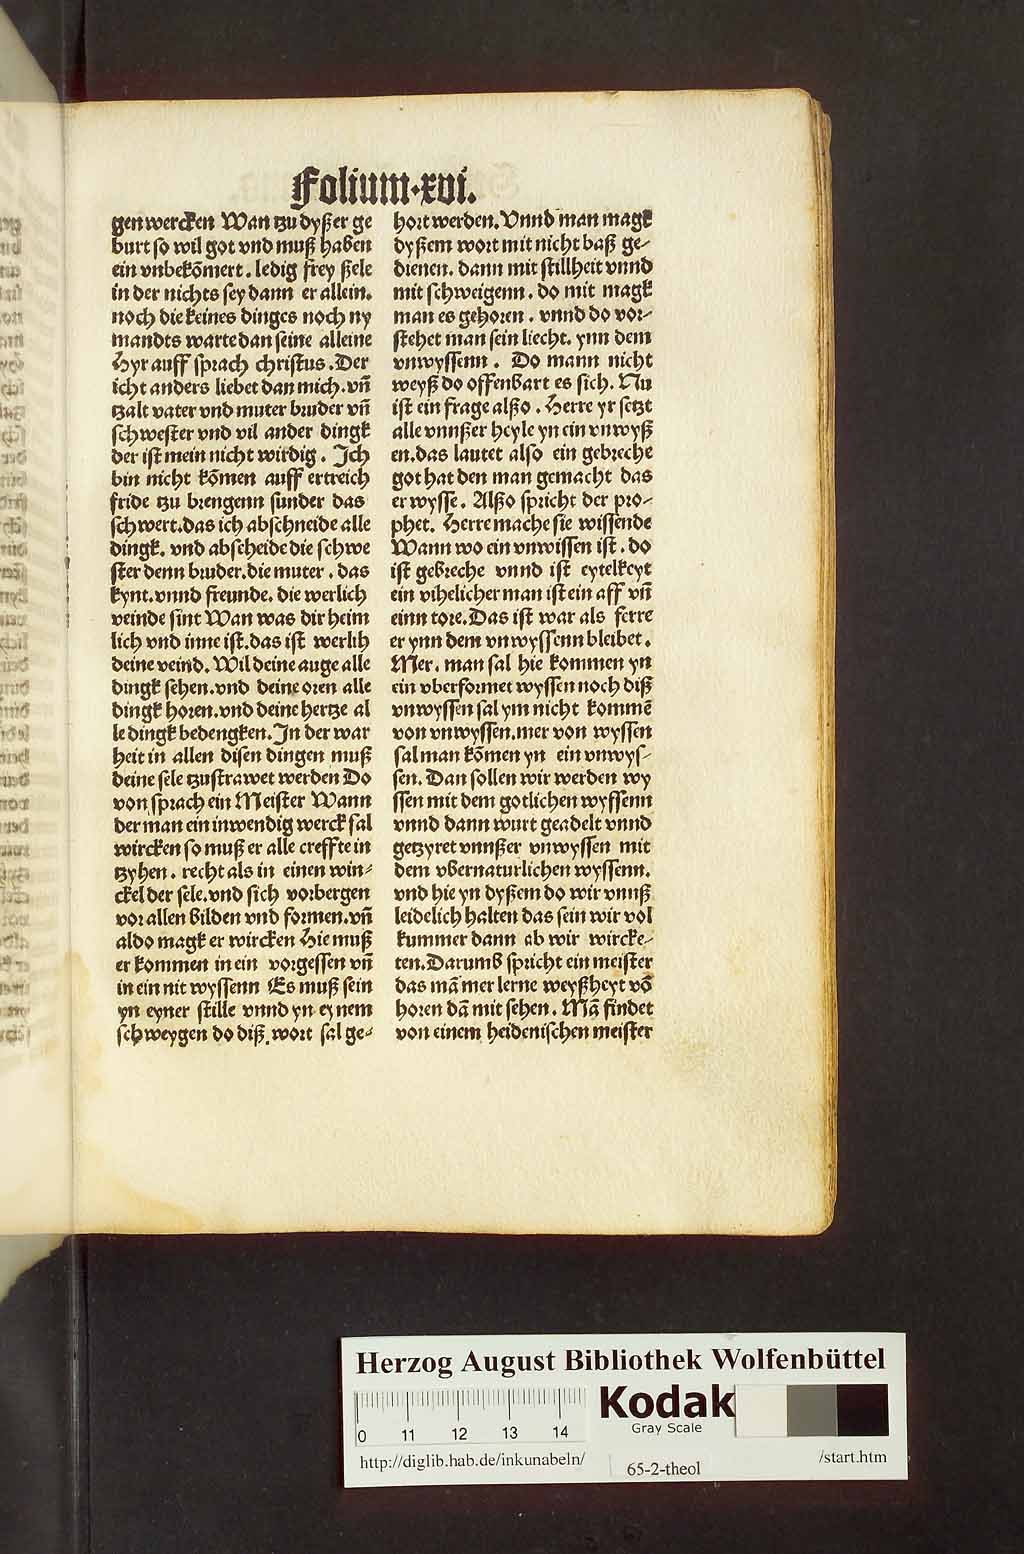 Folium.xvi.
gen wercken Wan tzu dyßer ge
burt so wil got vnd muß haben
ein vnbekōmert. ledig frey ßele
in der nichts sey dann er allein.
noch die keines dinges noch ny
mandts warte dan seine alleine
Hyr auff sprach christus. Der
icht anders liebet dan mich. vñ
tzalt vater vnd muter bruder vñ
schwester vnd vil ander dingk
der ist mein nicht wirdig. Jch
bin nicht kōmen auff ertreich
fride tzu brengenn sunder das
schwert. das ich abschneide alle
dingk. vnd abscheide die schwe
ster denn bruder. die muter. das
kynt. vnnd freunde. die werlich
veinde sint Wan was dir heim
lich vnd inne ist. das ist werlih
deine veind. Wil deine auge alle
dingk sehen. vnd deine oren alle
dingk horen. vnd deine hertze al
le dingk bedengken. Jn der war
heit in allen disen dingen muß
deine sele tzustrawet werden Do
von sprach ein Meister Wann
der man ein inwendig werck sal
wircken so muß er alle creffte in
tzyhen. recht als in einen win-
ckel der sele. vnd sich vorbergen
vor allen bilden vnd formen. vñ
aldo magk er wircken Hie muß
er kommen in ein vorgessen vñ
in ein nit wyssenn Es muß sein
yn eyner stille vnnd yn eynem
schweygen do diß wort sal ge-
hort werden. Vnnd man magk
dyßem wort mit nicht baß ge-
dienen. dann mit stillheit vnnd
mit schweigenn. do mit magk
man es gehoren. vnnd do vor-
stehet man sein liecht. ynn dem
vnwyssenn. Do mann nicht
weyß do offenbart es sich. Nu
ist ein frage alßo. Herre yr setzt
alle vnnßer heyle yn ein vnwyß
en. das lautet also ein gebreche
got hat den man gemacht das
er wysse. Alßo spricht der pro-
phet. Herre mache sie wissende
Wann wo ein vnwissen ist. do
ist gebreche vnnd ist eytelkeyt
ein vihelicher man ist ein aff vñ
einn tore. Das ist war als ferre
er ynn dem vnwyssenn bleibet.
Mer. man sal hie kommen yn
ein vberformet wyssen noch diß
vnwyssen sal ym nicht kommē
von vnwyssen. mer von wyssen
sal man kōmen yn ein vnwys-
sen. Dan sollen wir werden wy
ssen mit dem gotlichen wyssenn
vnnd dann wurt geadelt vnnd
getzyret vnnßer vnwyssen mit
dem vbernaturlichen wyssenn.
vnd hie yn dyßem do wir vnnß
leidelich halten das sein wir vol
kummer dann ab wir wircke-
ten. Darumb spricht ein meister
das mā mer lerne weyßheyt vō
horen dā mit sehen. Mā findet
von einem heidenischen meister
Herzog August Bibliothek Wolfenbüttel
0 11 12 13 14
Kodak
Gray Scale
http://diglib.hab.de/inkunabeln/
65-2-theol
/start.htm